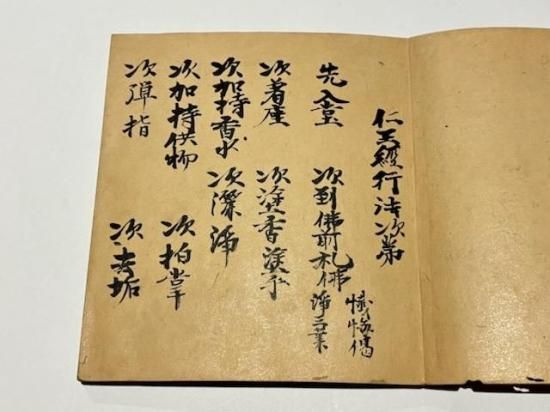 仁王經行法次第
先入堂　次到佛前礼佛　淨三業　懺悔偈
次着座　次塗香塗手
次加持香水　次灑淨
次加持供物　次拍掌
次弾指　次去垢